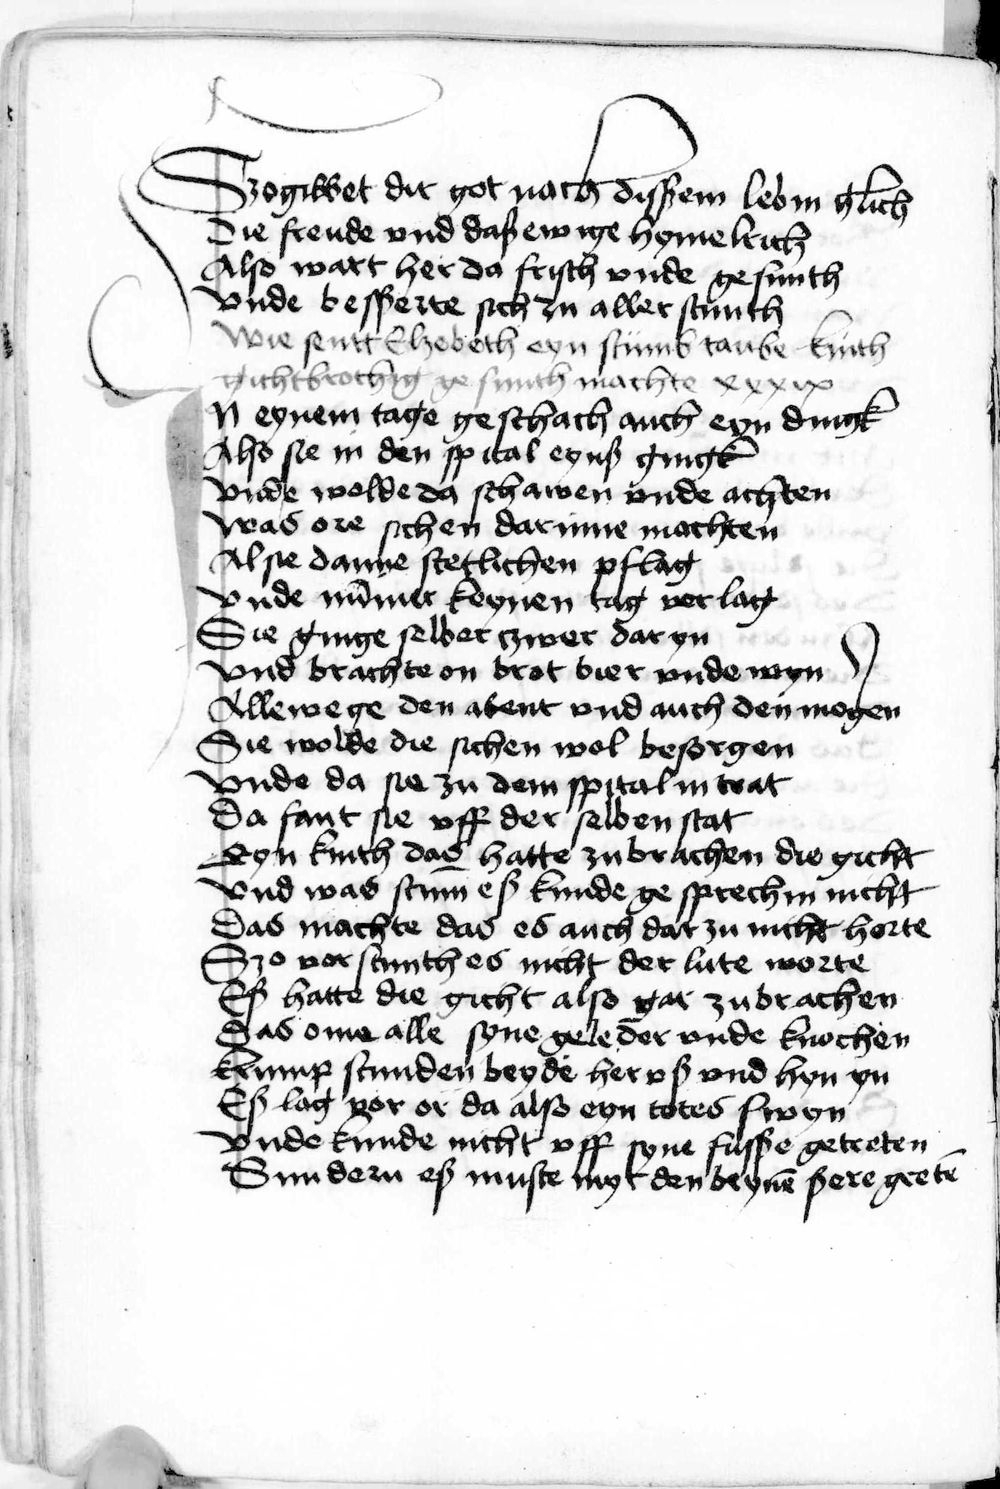 Szo gibbet dir got nach dissem lebin glich
Die freude vnd daß ewige hymelrich
Also wart her da frisch vnde gesunth
Vnde besserte sich zu aller stunth
Wie sentt Elzebeth eyn stumb taube kinth
gichtbrothig gesunth machte xxxix
In eynem tage geschach auch eyn dingk
Also sie in den spital eynß gingk
Vnde wolde da schawen vnde achten
Was ore sichen darinne machten
Als sie danne stetlichen pflag
Vnde nūmer keynen tag vorlag
Sie ginge selber czwer daryn
Vnd brachte on brot bier vnde wyn
Allewege den abent vnd auch den mogen
Sie wolde die sichen wol besorgen
Vnde da sie zu dem spital in trat
Da fant sie vff der selben stat
Eyn kinth das hatte zubrachen die gicht
Vnd was stum eß kunde gesprechin nicht
Das machte das es auch dar zu nicht horte
Szo vorstunth es nicht der lute worte
Eß hatte die gicht also gar zubrachen
Das ome alle syne geleder vnde knochen
Krump stunden beyde her vß vnd hyn yn
Eß lag vor or da also eyn totes swyn
Vnde kunde nicht vff syne fusse getreten
Sundern eß muste myt den beynē sere gretē